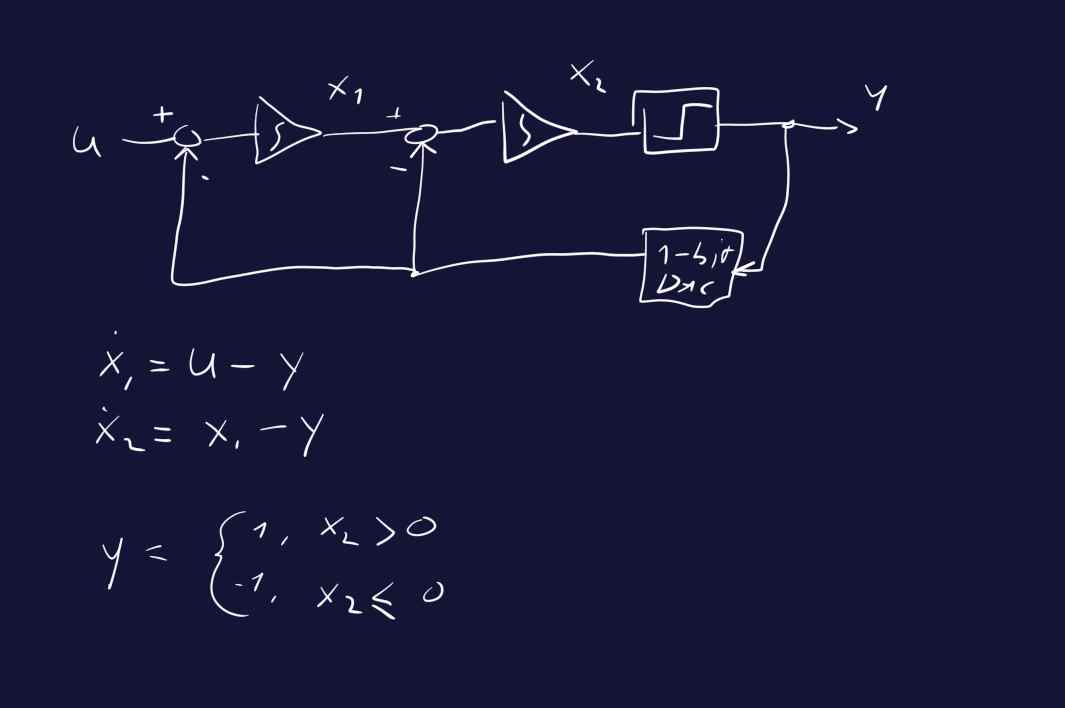 x₁ x₂ y
u + + 
- -
1-bit
DAC
ẋ₁ = u - y
ẋ₂ = x₁ - y
y = { 1, x₂ > 0
-1, x₂ ≤ 0